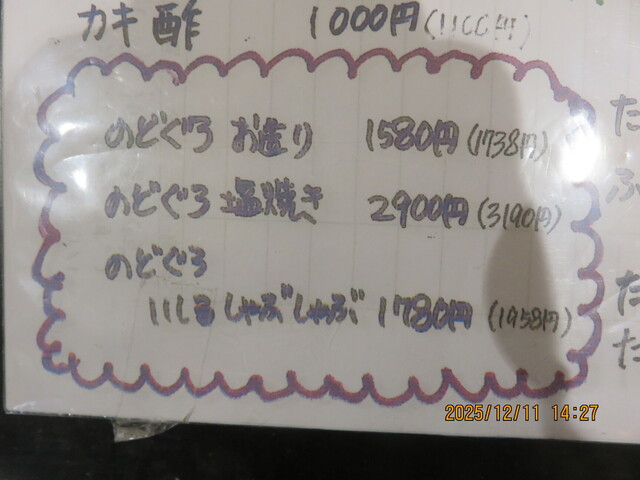 カキ酢 1000円(1100円)
のどぐろ お造り 1580円(1738円)
のどぐろ 塩焼き 2900円(3190円)
のどぐろ
いしるしゃぶしゃぶ 1780円(1958円)
た
ふ
た
た
2025/12/11 14:27